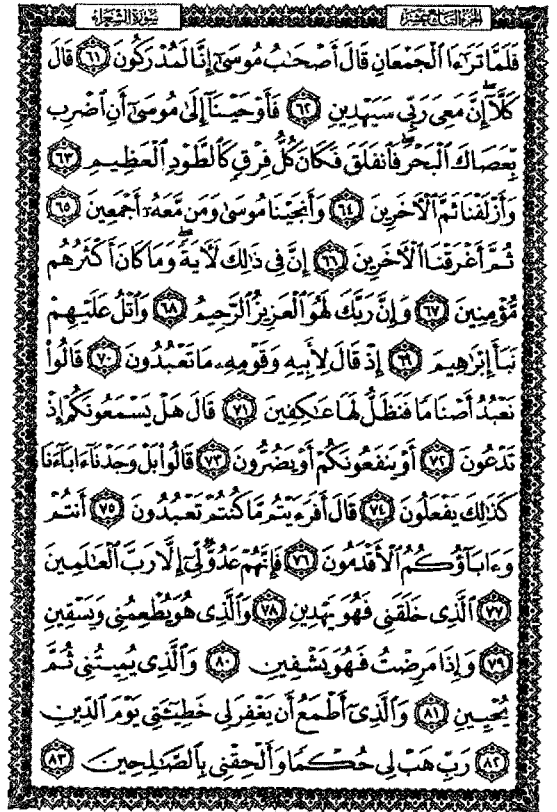 الجزء التاسع عشر
سورة الشعراء
فَلَمَّا تَرَٰٓءَا ٱلْجَمْعَانِ قَالَ أَصْحَٰبُ مُوسَىٰٓ إِنَّا لَمُدْرَكُونَ ٦١ قَالَ
كَلَّآ ۖ إِنَّ مَعِىَ رَبِّى سَيَهْدِينِ ٦٢ فَأَوْحَيْنَآ إِلَىٰ مُوسَىٰٓ أَنِ ٱضْرِب
بِّعَصَاكَ ٱلْبَحْرَ ۖ فَٱنفَلَقَ فَكَانَ كُلُّ فِرْقٍ كَٱلطَّوْدِ ٱلْعَظِيمِ ٦٣
وَأَزْلَفْنَا ثَمَّ ٱلْءَاخَرِينَ ٦٤ وَأَنجَيْنَا مُوسَىٰ وَمَن مَّعَهُۥٓ أَجْمَعِينَ ٦٥
ثُمَّ أَغْرَقْنَا ٱلْءَاخَرِينَ ٦٦ إِنَّ فِى ذَٰلِكَ لَءَايَةً ۖ وَمَا كَانَ أَكْثَرُهُم
مُّؤْمِنِينَ ٦٧ وَإِنَّ رَبَّكَ لَهُوَ ٱلْعَزِيزُ ٱلرَّحِيمُ ٦٨ وَٱتْلُ عَلَيْهِمْ
نَبَأَ إِبْرَٰهِيمَ ٦٩ إِذْ قَالَ لِأَبِيهِ وَقَوْمِهِۦ مَا تَعْبُدُونَ ٧٠ قَالُوا۟
نَعْبُدُ أَصْنَامًا فَنَظَلُّ لَهَا عَٰكِفِينَ ٧١ قَالَ هَلْ يَسْمَعُونَكُمْ إِذْ
تَدْعُونَ ٧٢ أَوْ يَنفَعُونَكُمْ أَوْ يَضُرُّونَ ٧٣ قَالُوا۟ بَلْ وَجَدْنَآ ءَابَآءَنَا
كَذَٰلِكَ يَفْعَلُونَ ٧٤ قَالَ أَفَرَءَيْتُم مَّا كُنتُمْ تَعْبُدُونَ ٧٥ أَنتُمْ
وَءَابَآؤُكُمُ ٱلْأَقْدَمُونَ ٧٦ فَإِنَّهُمْ عَدُوٌّ لِّىٓ إِلَّا رَبَّ ٱلْعَٰلَمِينَ
٧٧ ٱلَّذِى خَلَقَنِى فَهُوَ يَهْدِينِ ٧٨ وَٱلَّذِى هُوَ يُطْعِمُنِى وَيَسْقِينِ
٧٩ وَإِذَا مَرِضْتُ فَهُوَ يَشْفِينِ ٨٠ وَٱلَّذِى يُمِيتُنِى ثُمَّ
يُحْيِينِ ٨١ وَٱلَّذِىٓ أَطْمَعُ أَن يَغْفِرَ لِى خَطِيٓـَٔتِى يَوْمَ ٱلدِّينِ
٨٢ رَبِّ هَبْ لِى حُكْمًا وَأَلْحِقْنِى بِٱلصَّٰلِحِينَ ٨٣